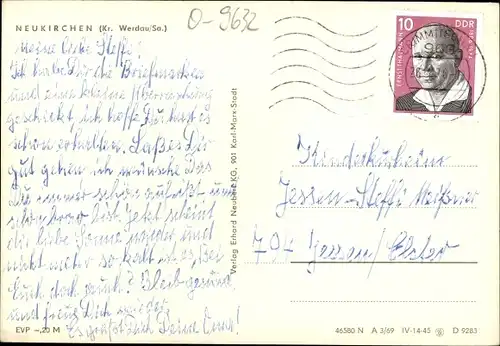 NEUKIRCHEN (Kr. Werdau/Sa.)
O-9632
Meine liebe Steffi!
Ich habe Dir die Briefmarken
und eine kleine Überraschung
geschickt, ich hoffe Du hast es
schon erhalten. Laß es Dir
gut gehen ich wünsche Das
Du immer schön und
bist. Jetzt scheint
die liebe Sonne wieder und
nicht mehr so kalt ist es, bei
Euch doch auch? Bleib gesund
und freue Dich
Es grüßt Dich Deine Oma!
EVP -,20 M
Verlag Erhard Neubert KG, 901 Karl-Marx-Stadt
10
DDR
ERNST THÄLMANN
Kinderkurheim
Jessen - Steffi Meißner
Jessen/Elster
46580 N A 3/69 IV-14-45 D 9283